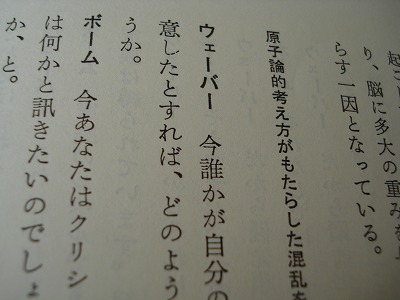 り、脳に多大の重みを
らす一因となっている。
原子論的考え方がもたらした混乱を
ウェーバー　今誰かが自分の
意したとすれば、どのよう
うか。
ボーム　今あなたはクリシ
は何かと訊きたいのでしょ
か、と。